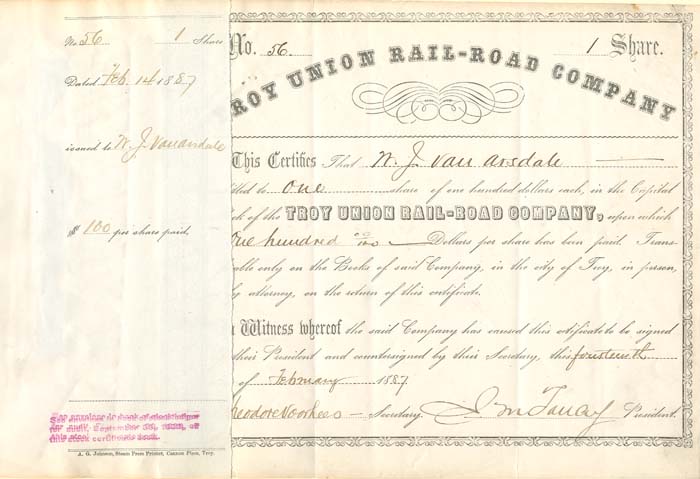 No. 56 1 Share
Dated Feb. 14 1887
issued to W. J. Van arsdale
$ 100 per share paid.
A. G. Johnson, Steam Press Printer, Cannon Place, Troy.
No. 56. 1 Share.
ROY UNION RAIL-ROAD COMPANY
This Certifies That W. J. Van arsdale
tled to One share of one hundred dollars each, in the Capital
ck of the TROY UNION RAIL-ROAD COMPANY, upon which
One hundred 00/100 Dollars per share has been paid. Trans-
able only on the Books of said Company, in the city of Troy, in person,
by attorney, on the return of this certificate.
n Witness whereof the said Company has caused this certificate to be signed
their President and countersigned by their Secretary, this fourteenth
of February 1887
heodore Voorhees Secretary. President.